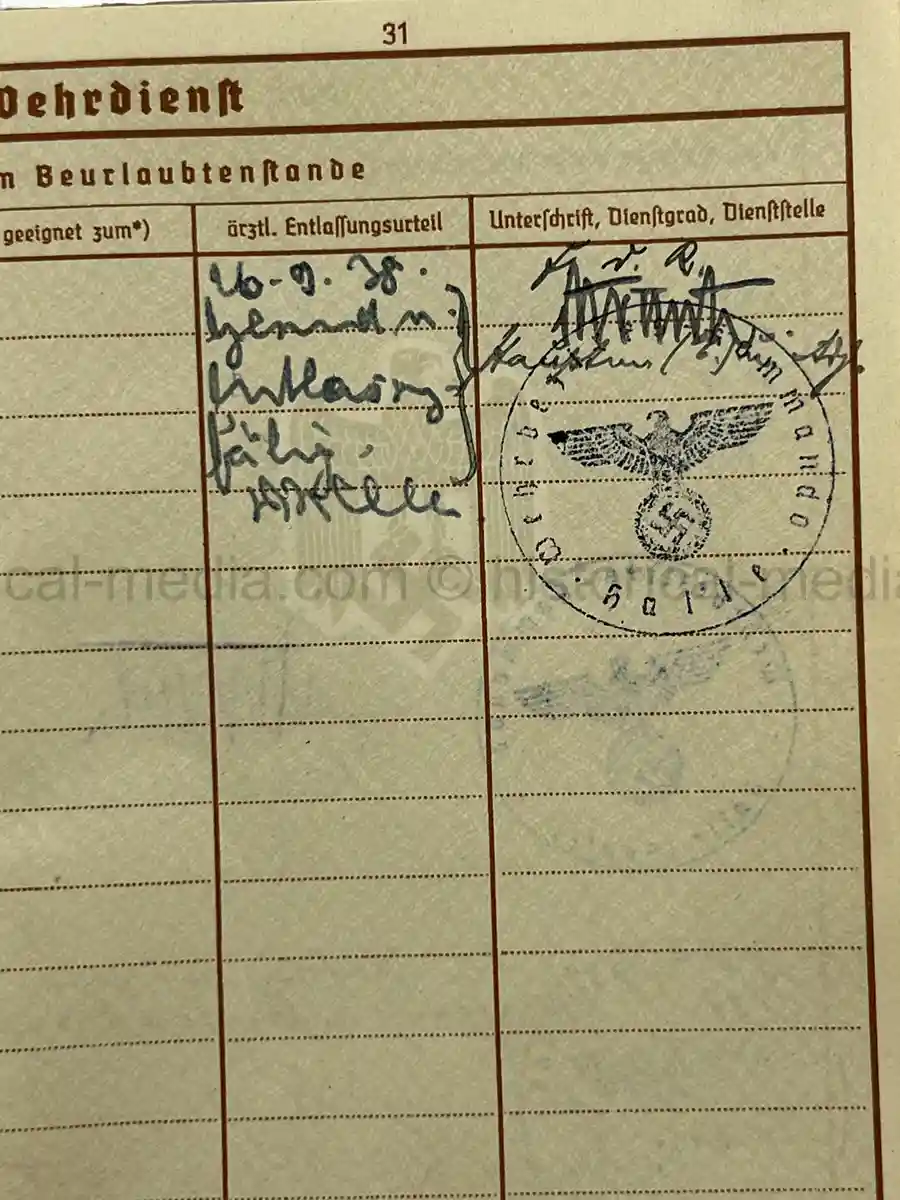 31
Wehrdienst
m Beurlaubtenstande
geeignet zum*)
ärztl. Entlassungsurteil
Unterschrift, Dienstgrad, Dienststelle
26.9.38.
F. d. R.
Gesund u.
entlassungs-
fähig.
Hauptm (E.) u. Adj.
Wehrbe kommando
· Halle ·
cal-media.com © historical-media